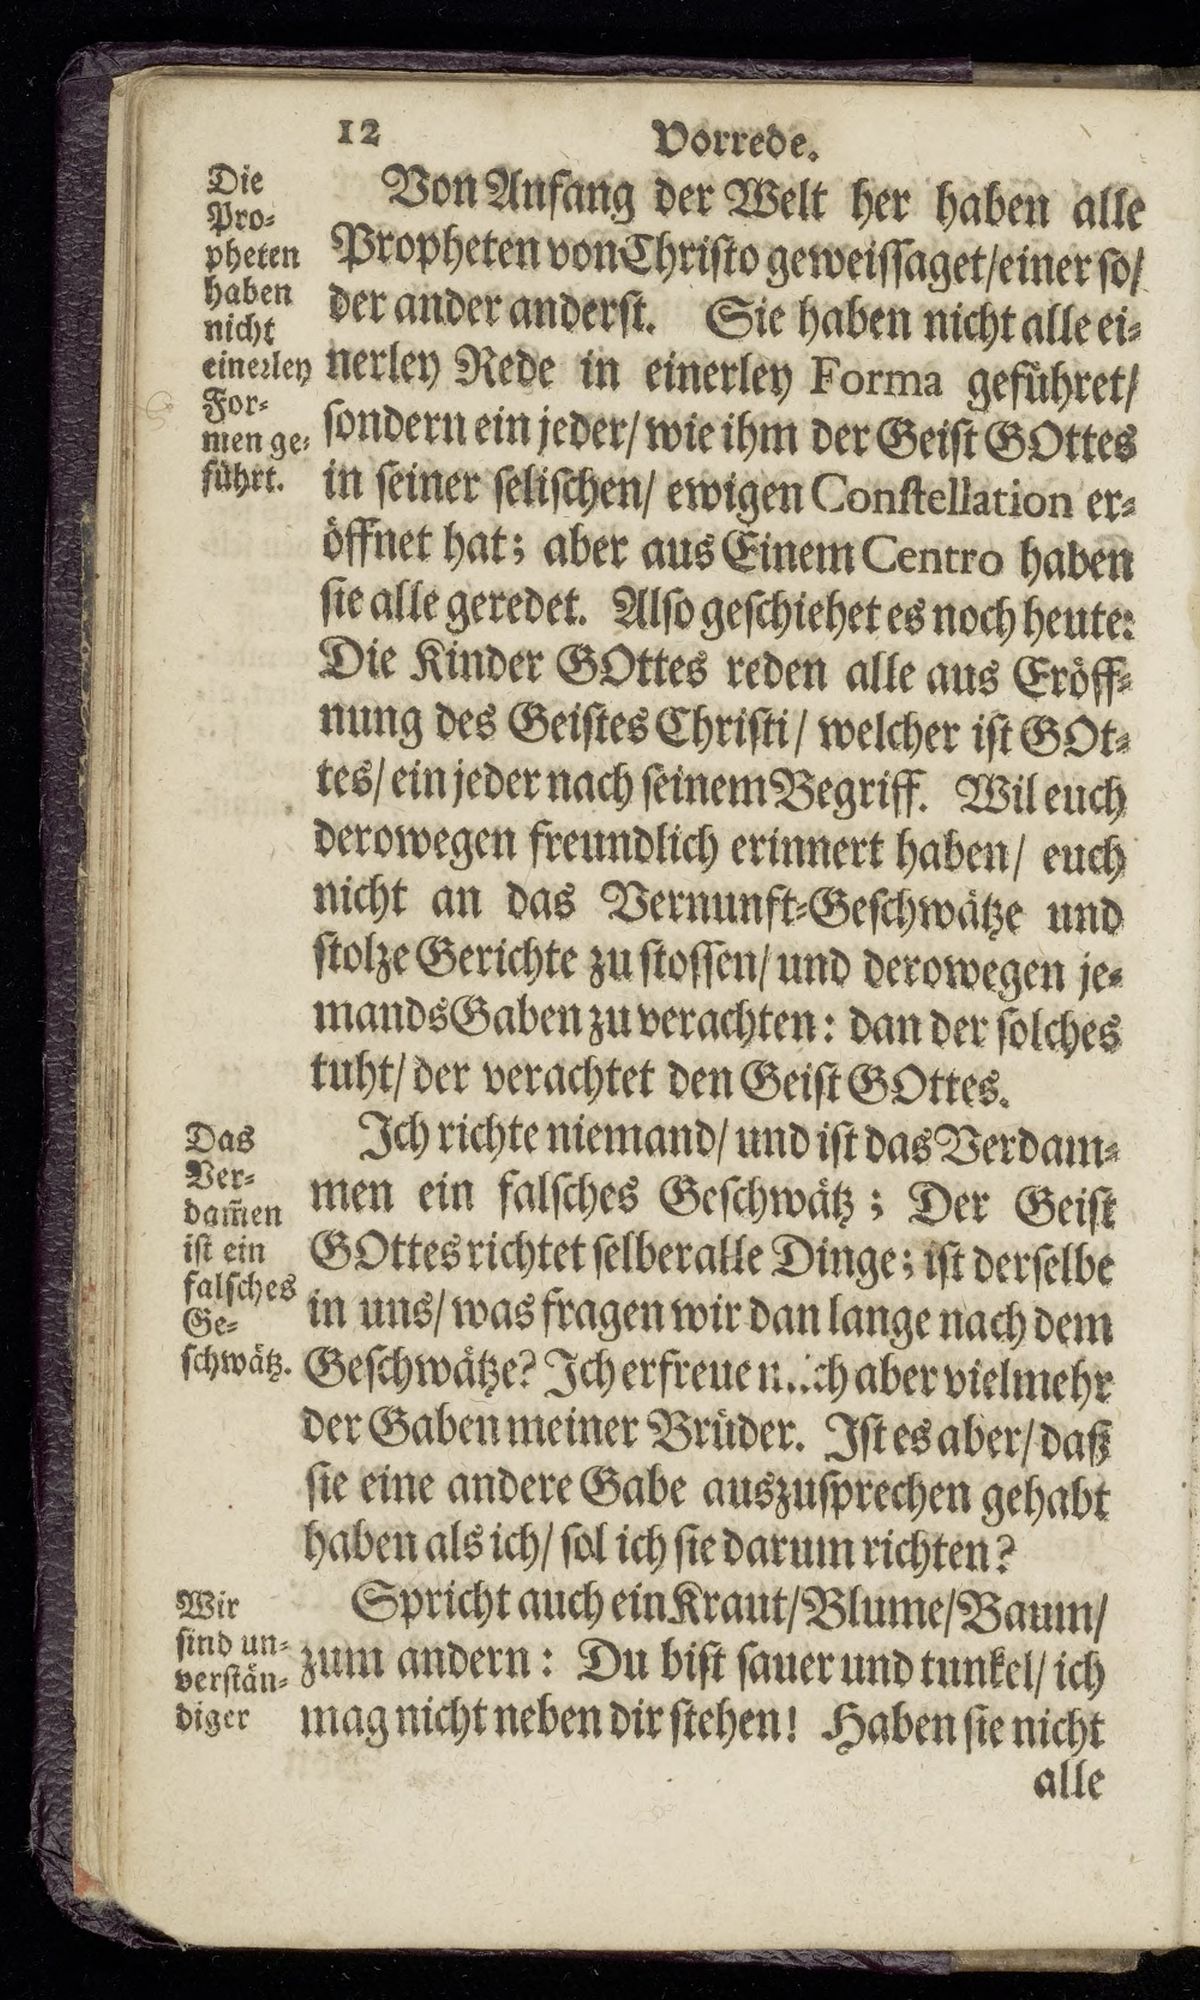 12
Vorrede.
Die
Pro-
pheten
haben
nicht
einerley
For-
men ge-
führt.
Von Anfang der Welt her haben alle
Propheten von Christo geweissaget/ einer so/
der ander anderst. Sie haben nicht alle ei-
nerley Rede in einerley Forma geführet/
sondern ein jeder/ wie ihm der Geist GOttes
in seiner selischen/ ewigen Constellation er-
öffnet hat; aber aus Einem Centro haben
sie alle geredet. Also geschiehet es noch heute:
Die Kinder GOttes reden alle aus Eröff-
nung des Geistes Christi/ welcher ist GOt-
tes/ ein jeder nach seinem Begriff. Wil euch
derowegen freundlich erinnert haben/ euch
nicht an das Vernunft-Geschwätze und
stolze Gerichte zu stossen/ und derowegen je-
mands Gaben zu verachten: dan der solches
tuht/ der verachtet den Geist GOttes.
Das
Ver-
dam̄en
ist ein
falsches
Ge-
schwätz.
Ich richte niemand/ und ist das Verdam-
men ein falsches Geschwätz; Der Geist
GOttes richtet selber alle Dinge; ist derselbe
in uns/ was fragen wir dan lange nach dem
Geschwätze? Ich erfreue mich aber vielmehr
der Gaben meiner Brüder. Ist es aber/ daß
sie eine andere Gabe auszusprechen gehabt
haben als ich/ sol ich sie darum richten?
Wir
sind un-
verstän-
diger
Spricht auch ein Kraut/ Blume/ Baum/
zum andern: Du bist sauer und tunkel/ ich
mag nicht neben dir stehen! Haben sie nicht
alle